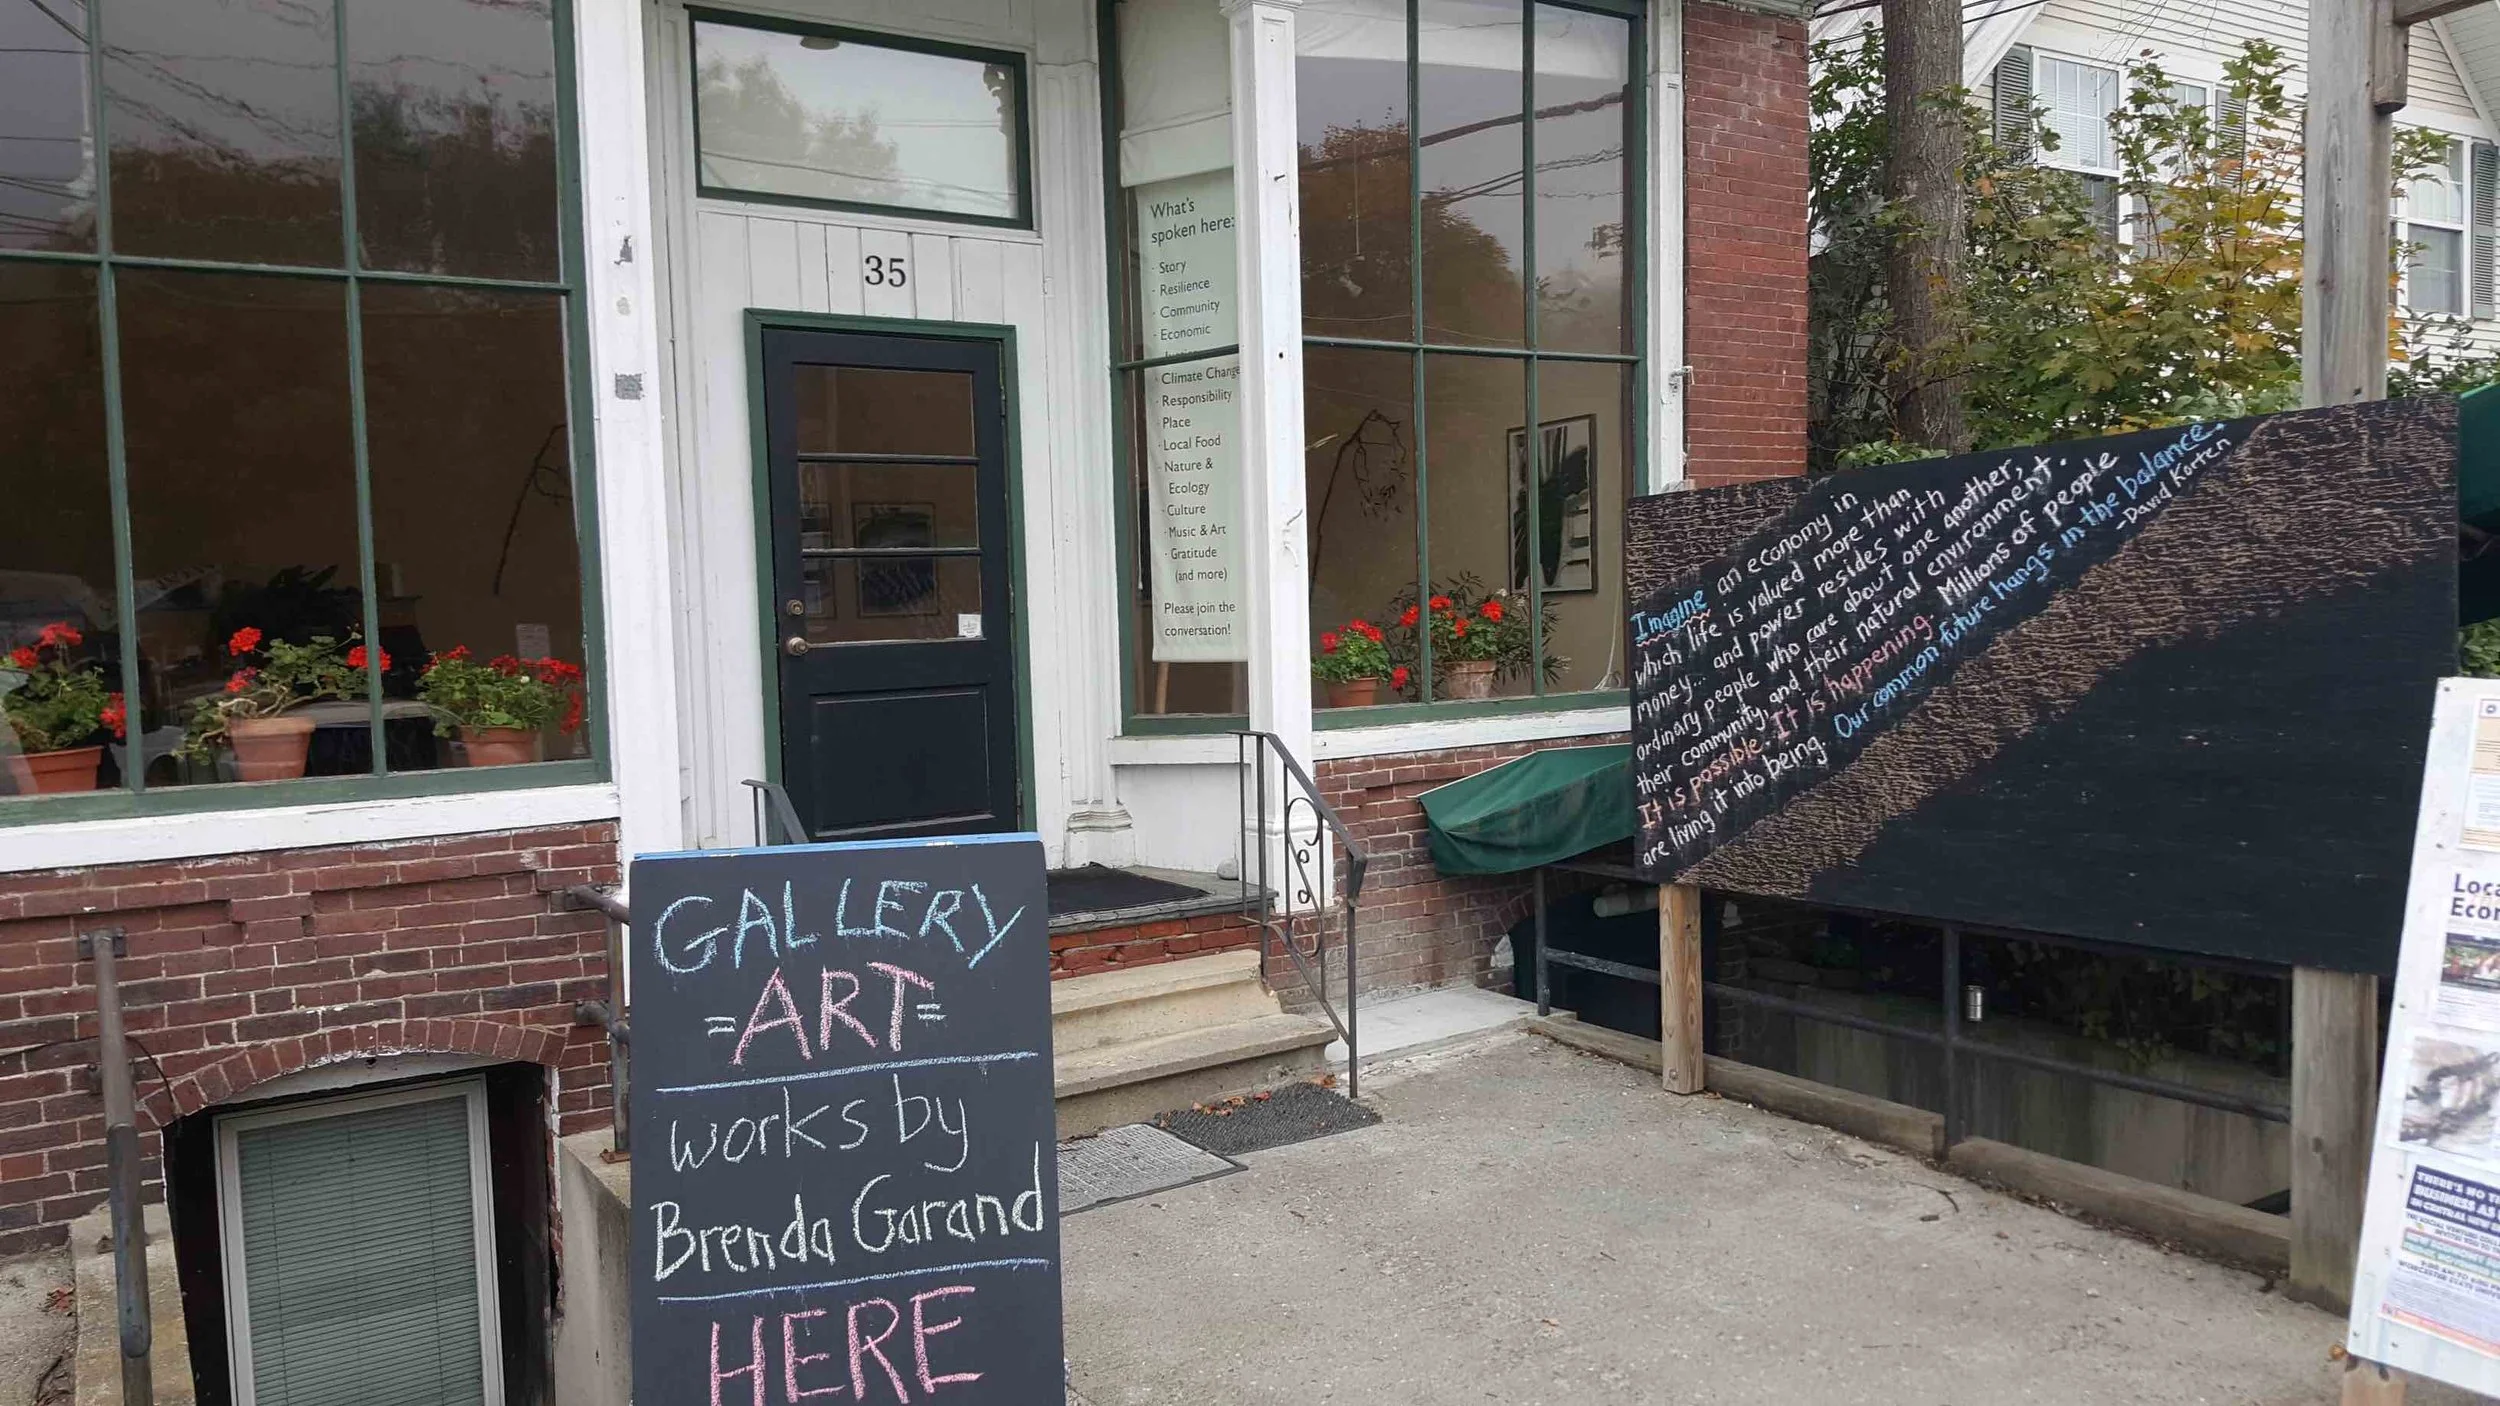 35
What's
spoken here:
· Story
· Resilience
· Community
· Economic
· Climate Change
· Responsibility
· Place
· Local Food
· Nature &
Ecology
· Culture
· Music & Art
· Gratitude
(and more)
Please join the
conversation!
Imagine an economy in
which life is valued more than
money... and power resides with
ordinary people who care about one another,
their community, and their natural environment.
It is possible. It is happening. Millions of people
are living it into being. Our common future hangs in the balance.
-David Korten
GALLERY
=ART=
works by
Brenda Garand
HERE
THERE'S NO
BUSINESS AS